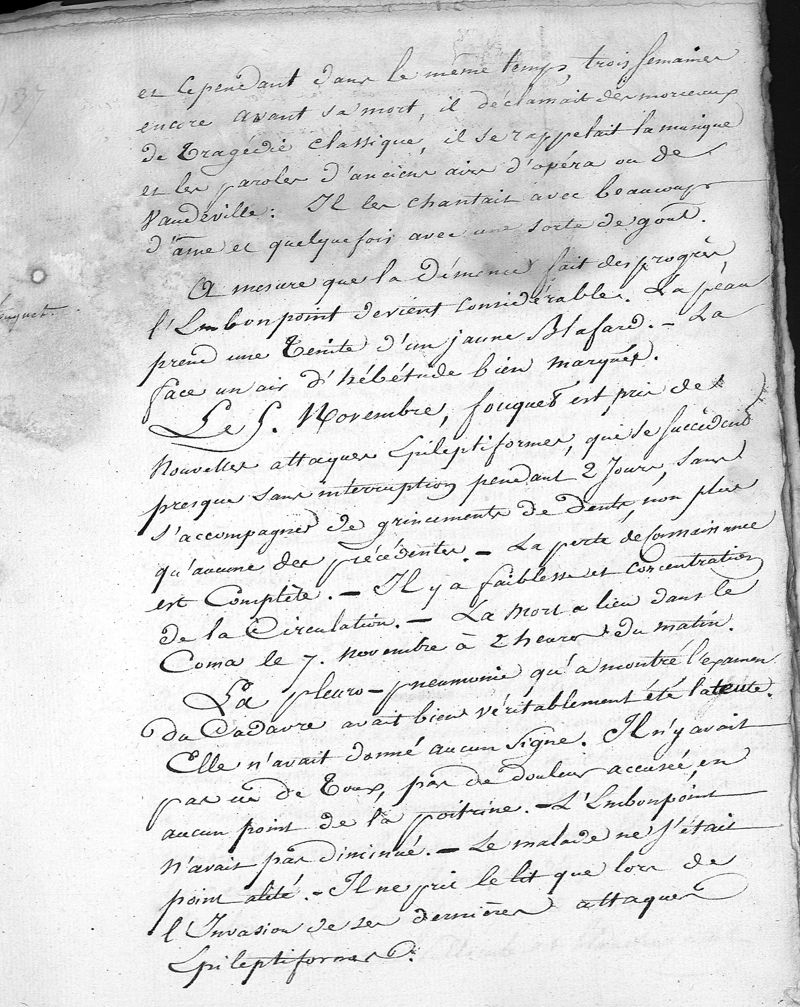 127
et cependant dans le même temps, trois semaines
encore avant sa mort, il déclamait des morceaux
de Tragédie classique, il se rappelait la musique
et les paroles d'anciens airs d'opéra ou de
Vaudeville. Il les chantait avec beaucoup
d'âme et quelquefois avec une sorte de goût.
A mesure que la démence fait des progrès
l'Embonpoint devient considérable. La peau
prend une teinte d'un jaune Blafard. - La
face un air d'hébétude bien marquée.
Le 5. Novembre, fouquet est pris de
Nouvelles attaques Epileptiformes, qui se succèdent
presque sans interruption pendant 2 Jours, sans
s'accompagner de grincements de dents, non plus
qu'aucune des précédentes. - La perte de Connaissance
est Complète. - Il y a faiblesse et concentration
de la Circulation. - La Mort a lieu dans le
Coma le 7. novembre à 2 heures du matin.
La pleuro-pneumonie qu'a montré l'examen
du Cadavre avait bien véritablement été latente.
Elle n'avait donné aucun signe. Il n'y avait
pas de Toux, pas de douleur accusée, en
aucun point de la poitrine. - L'Embonpoint
n'avait pas diminué. - Le malade ne s'était
point alité. - Il ne prit le lit que lors de
l'Invasion de ses dernières attaques
Epileptiformes.